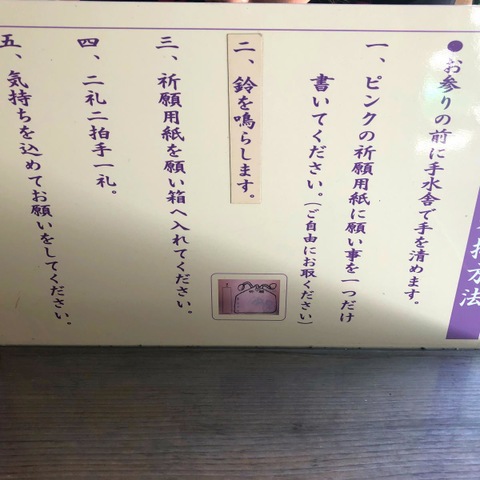 拝方法
●お参りの前に手水舎で手を清めます。
一、ピンクの祈願用紙に願い事を一つだけ
書いてください。（ご自由にお取ください）
二、鈴を鳴らします。
三、祈願用紙を願い箱へ入れてください。
四、二礼二拍手一礼。
五、気持ちを込めてお願いをしてください。